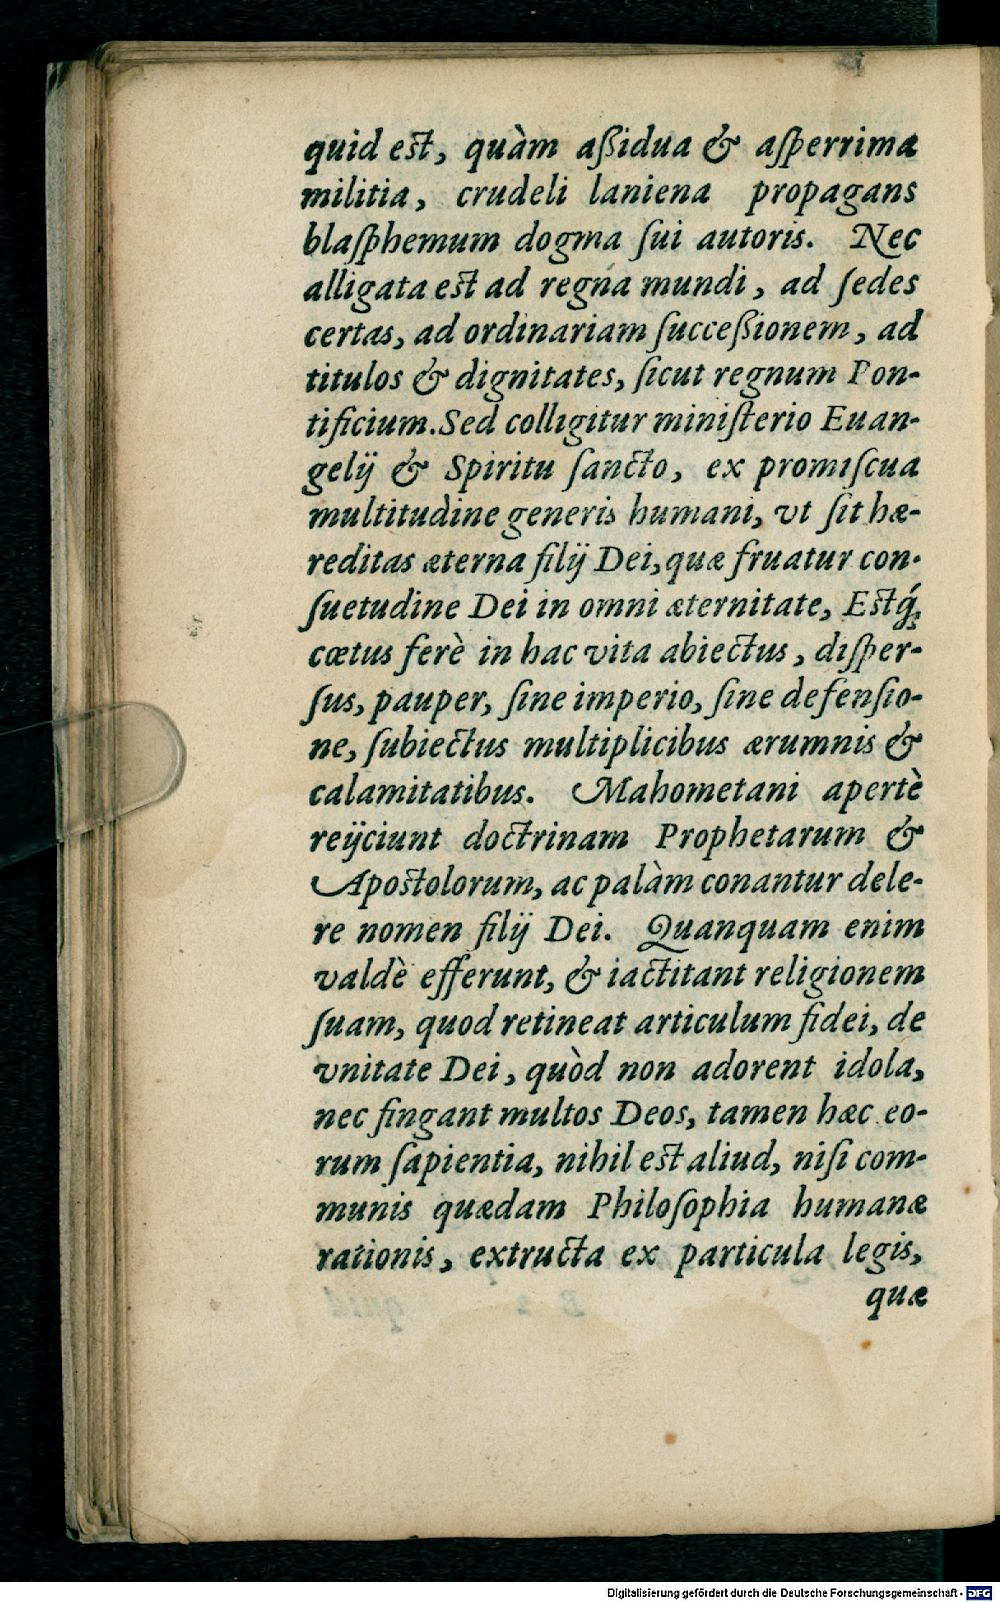 quid est, quàm aßidua & aſperrima
militia, crudeli laniena propagans
blaſphemum dogma ſui autoris. Nec
alligata est ad regna mundi, ad ſedes
certas, ad ordinariam ſucceßionem, ad
titulos & dignitates, ſicut regnum Pon-
tificium. Sed colligitur miniſterio Euan-
gelij & Spiritu ſancto, ex promiſcua
multitudine generis humani, vt ſit hæ-
reditas æterna filij Dei, quæ fruatur con-
ſuetudine Dei in omni æternitate, Estq́;
cœtus ferè in hac vita abiectus, diſper-
ſus, pauper, ſine imperio, ſine defenſio-
ne, ſubiectus multiplicibus ærumnis &
calamitatibus. Mahometani apertè
reijciunt doctrinam Prophetarum &
Apostolorum, ac palàm conantur dele-
re nomen filij Dei. Quanquam enim
valdè efferunt, & iactitant religionem
ſuam, quod retineat articulum fidei, de
vnitate Dei, quòd non adorent idola,
nec fingant multos Deos, tamen hæc eo-
rum ſapientia, nihil est aliud, niſi com-
munis quædam Philoſophia humanæ
rationis, extructa ex particula legis,
quæ
Digitalisierung gefördert durch die Deutsche Forschungsgemeinschaft - DFG